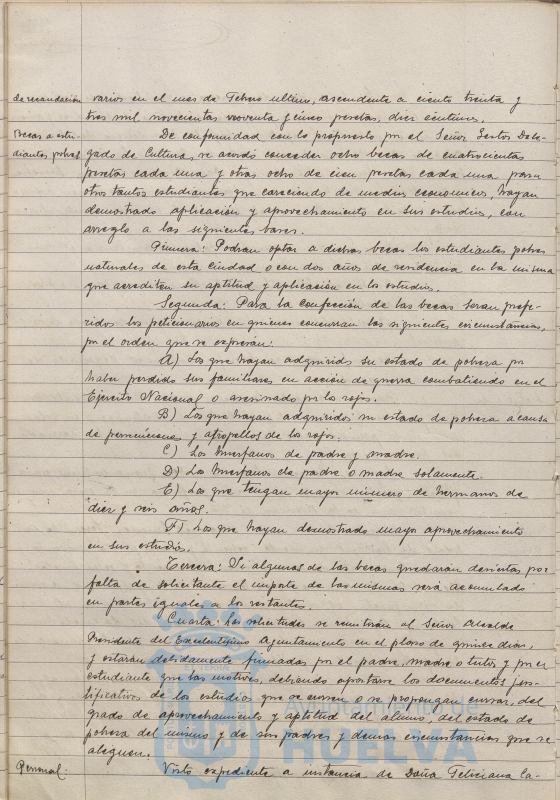 de recaudación varios en el mes de Febrero último, ascendente a ciento treinta y
tres mil novecientas noventa y cinco pesetas, diez céntimos.
Becas a estu- De conformidad con lo propuesto por el Señor Gestor Dele-
diantes pobres gado de Cultura, se acordó conceder ocho becas de cuatrocientas
pesetas cada una y otras ocho de cien pesetas cada una para
otros tantos estudiantes que careciendo de medios económicos, hayan
demostrado aplicación y aprovechamiento en sus estudios, con
arreglo a las siguientes bases.
Primera: Podrán optar a dichas becas los estudiantes pobres
naturales de esta ciudad o con dos años de residencia en la misma
que acrediten su aptitud y aplicación en los estudios.
Segunda: Para la confección de las becas serán prefe-
ridos los peticionarios en quienes concurran las siguientes circunstancias,
por el orden que se expresan:
A) Los que hayan adquirido su estado de pobreza por
haber perdido sus familiares en acción de guerra combatiendo en el
Ejército Nacional o asesinado por los rojos.
B) Los que hayan adquirido su estado de pobreza a causa
de persecuciones y atropellos de los rojos.
C) Los huérfanos de padre y madre.
D) Los huérfanos de padre o madre solamente.
E) Los que tengan mayor número de hermanos de
diez y seis años.
F) Los que hayan demostrado mayor aprovechamiento
en sus estudios.
Tercera: Si algunas de las becas quedaran desiertas por
falta de solicitante el importe de las mismas será acumulado
en partes iguales a los restantes.
Cuarta: Las solicitudes se remitirán al Señor Alcalde
Presidente del Excelentísimo Ayuntamiento en el plazo de quince días,
y estarán debidamente firmadas por el padre, madre o tutor y por el
estudiante que las motive, debiendo aportarse los documentos jus-
tificativos de los estudios que se cursen o se propongan cursar, del
grado de aprovechamiento y aptitud del alumno, del estado de
pobreza del mismo y de sus padres y demás circunstancias que se
aleguen.
Personal: Visto expediente a instancia de Doña Feliciana Ca-
Ayuntamiento de
HUELVA